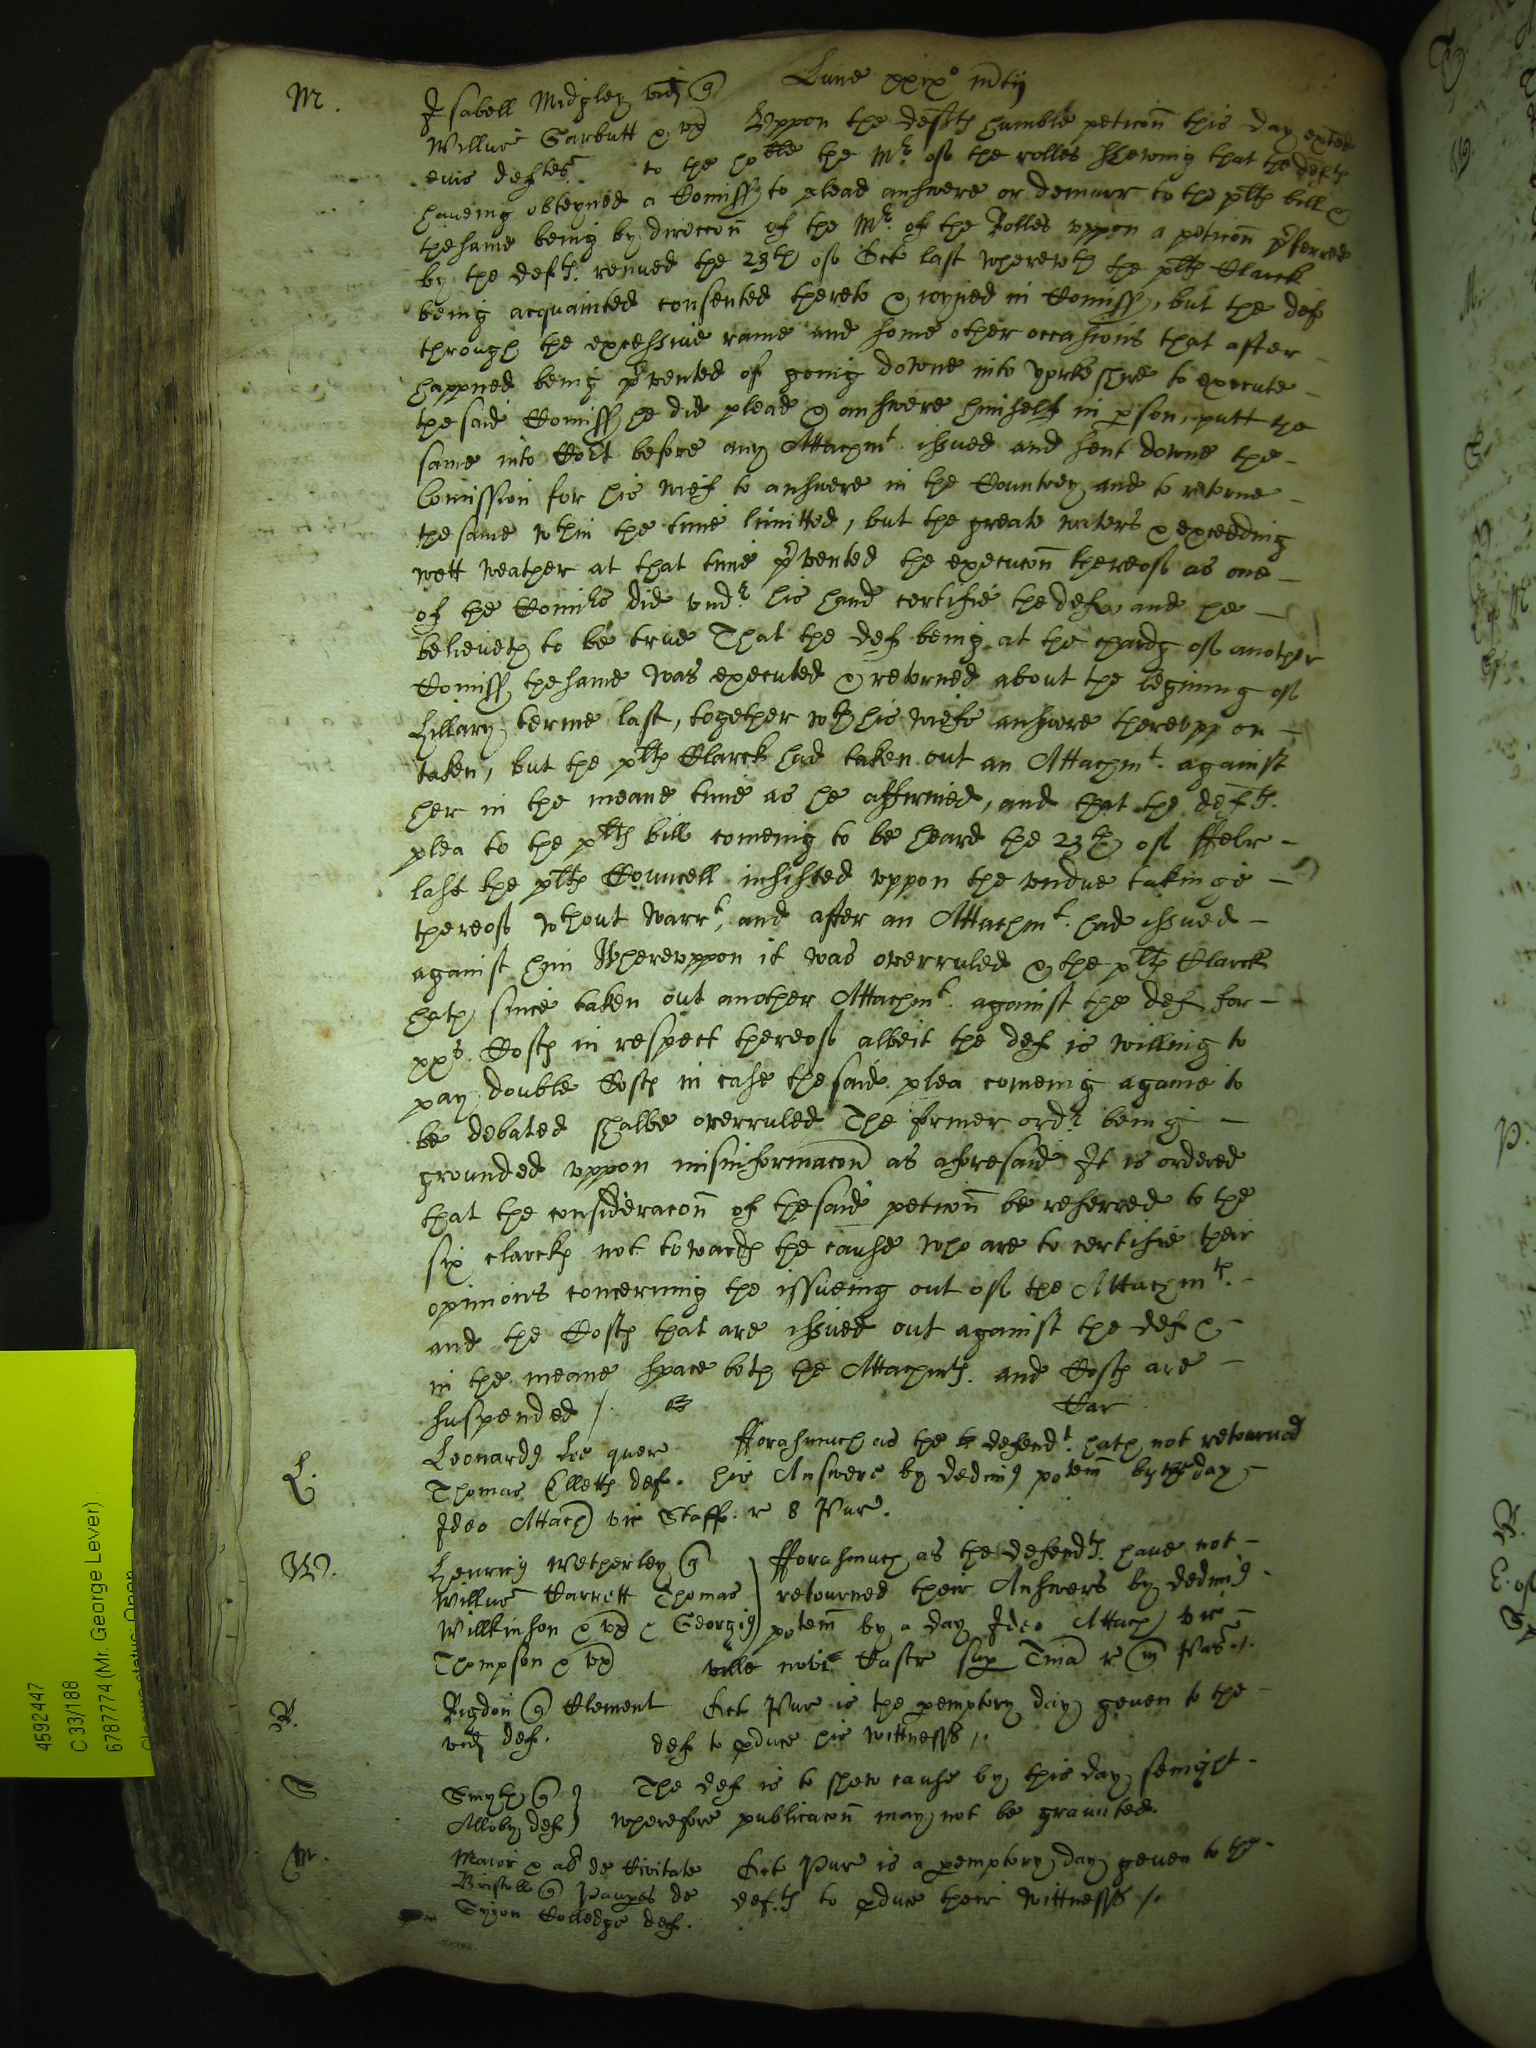 Lune xxix° m̄tij
M. Isabell Midgley vid q̃
Willm̄s Garbutt & vx̄ Vppon the deftꝭ humble peticōn this day exħted
eius deftes. to the ho:ble the Mr of the rolles shewing that the deftꝭ
haveing obteyned a Comiss to plead answere or demurr to the pltꝭ bill &
the same being by direccōn of the Mr of the Rolles vppon a peticōn p̄ferred
by the deftꝭ renued the 23th of Octo last wherewth the pltꝭ Clarck
being acquainted consented thereto & ioyned in Comiss, but the def
through the excessive raine and some other occasions that after
happned being p̄vented of going downe into Yorkeshire to execute
the said Comiss he did plead & answere himself in p̱son, putt the
same into Cort before any Attachmt issued and sent downe the
Comission for his wief to answere in the Countrey and to retorne
the same wthin the time limitted, but the greate waters & exceeding
wett weather at that time p̄vented the execucōn thereof as one
of the Comirs did vndr his hand certifie the def and he
believeth to be true That the def being at the chardg of another
Comiss the same was executed & retorned about the begining of
Hillary terme last, together wth his wiefes answere therevppon
taken, but the pltꝭ Clarck had taken out an Attachmt against
her in the meane time as he affirmed, and that the deftꝭ
plea to the pltꝭ bill comeing to be heard the 23th of ffebr
last the pltꝭ Councell insisted vppon the vndue takinge
thereof wthout warrt, and after an Attachmt had issued
against him Wherevppon it was overruled & the pltꝭ Clarck
hath since taken out another Attachmt against the def for
xxs Costꝭ in respect thereof albeit the def is willing to
pay double Costꝭ in case the said plea comeing againe to
be debated shalbe overruled The former ordr being
grounded vppon misinformacōn as aforesaid It is ordered
that the consideracōn of the said peticōn be referred to the
six clarckꝭ not towardꝭ the cause who are to certifie their
opinions concerning the issueing out of the Attachmtꝭ
and the Costꝭ that are issued out against the def &
in the meane space both the Attachmtꝭ and Costꝭ are
suspended /.
Car
L. Leonardꝰ Lee quer fforasmuch as the defendt hath not retourned
Thomas Colletꝭ def. his Answere by dedimꝰ potem̄ by the day
Ideo Attach vic Staff. r 8 Pur.
W. Henricꝰ Wetherley q̃ fforasmuch as the defendtꝭ have not
Willm̄s Garrett Thomas retourned their Answers by dedimꝰ
Willkinson & vx̄ & Georgiꝰ potem̄ by a day Ideo Attach vic
Thompson & vx̄ ville novi Castr sup̱ Tina r Pas ./.
R. Rigdon q̃ Clement Oct Pur is the p̱emptory day geven to the
vid def. def to p̱duce his wittnesses /.
S Smyth q̃ The def is to shew cause by this day senight
Alloby def wherefore publicacōn may not be graunted.
M. Maior & al̄ de Civitate Oct Pur is a p̱emptory day geven to the
Bristoll q̃ Paup̱es de deftꝭ to p̱duce their wittnesses ./.
Syon Colledge def.
4592447
C 33/188
6787774 (Mr. George Lever)
Closure status: Open